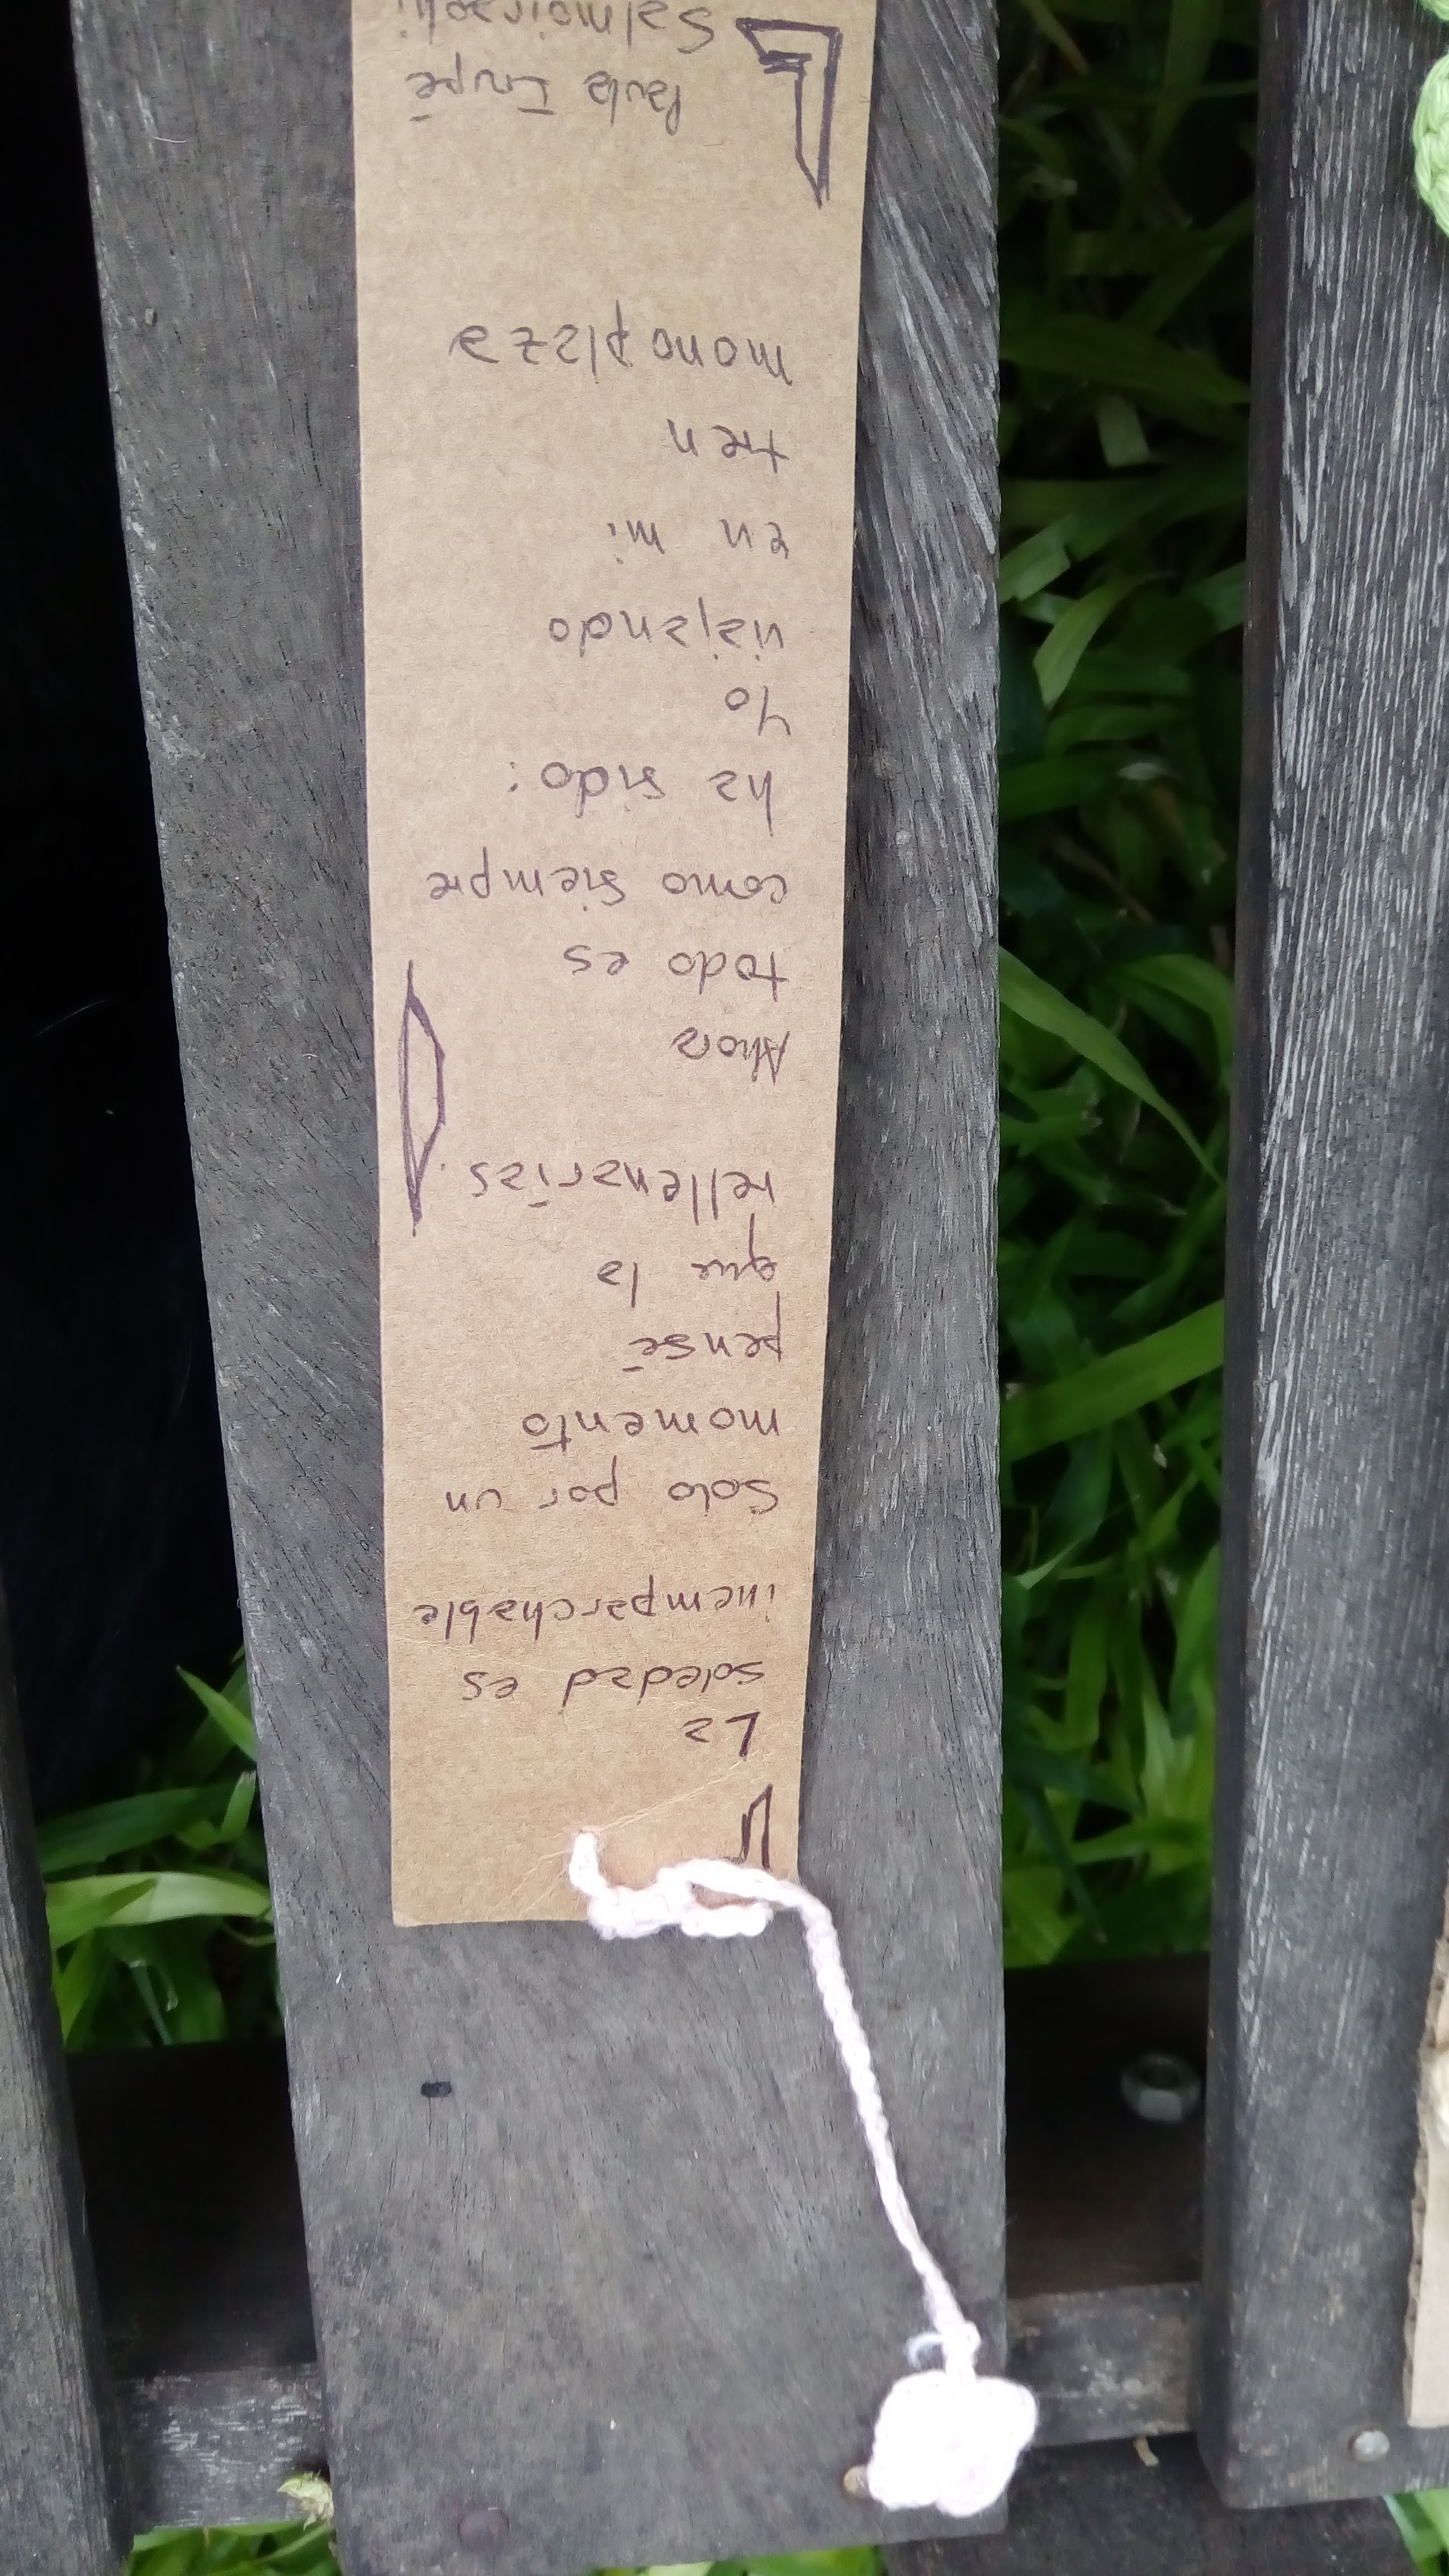 La
soledad es
inemparchable
Solo por un
momento
pensé
que la
rellenarías.
Ahora
todo es
como siempre
ha sido:
Yo
viajando
en mi
tren
monoplaza
Paula